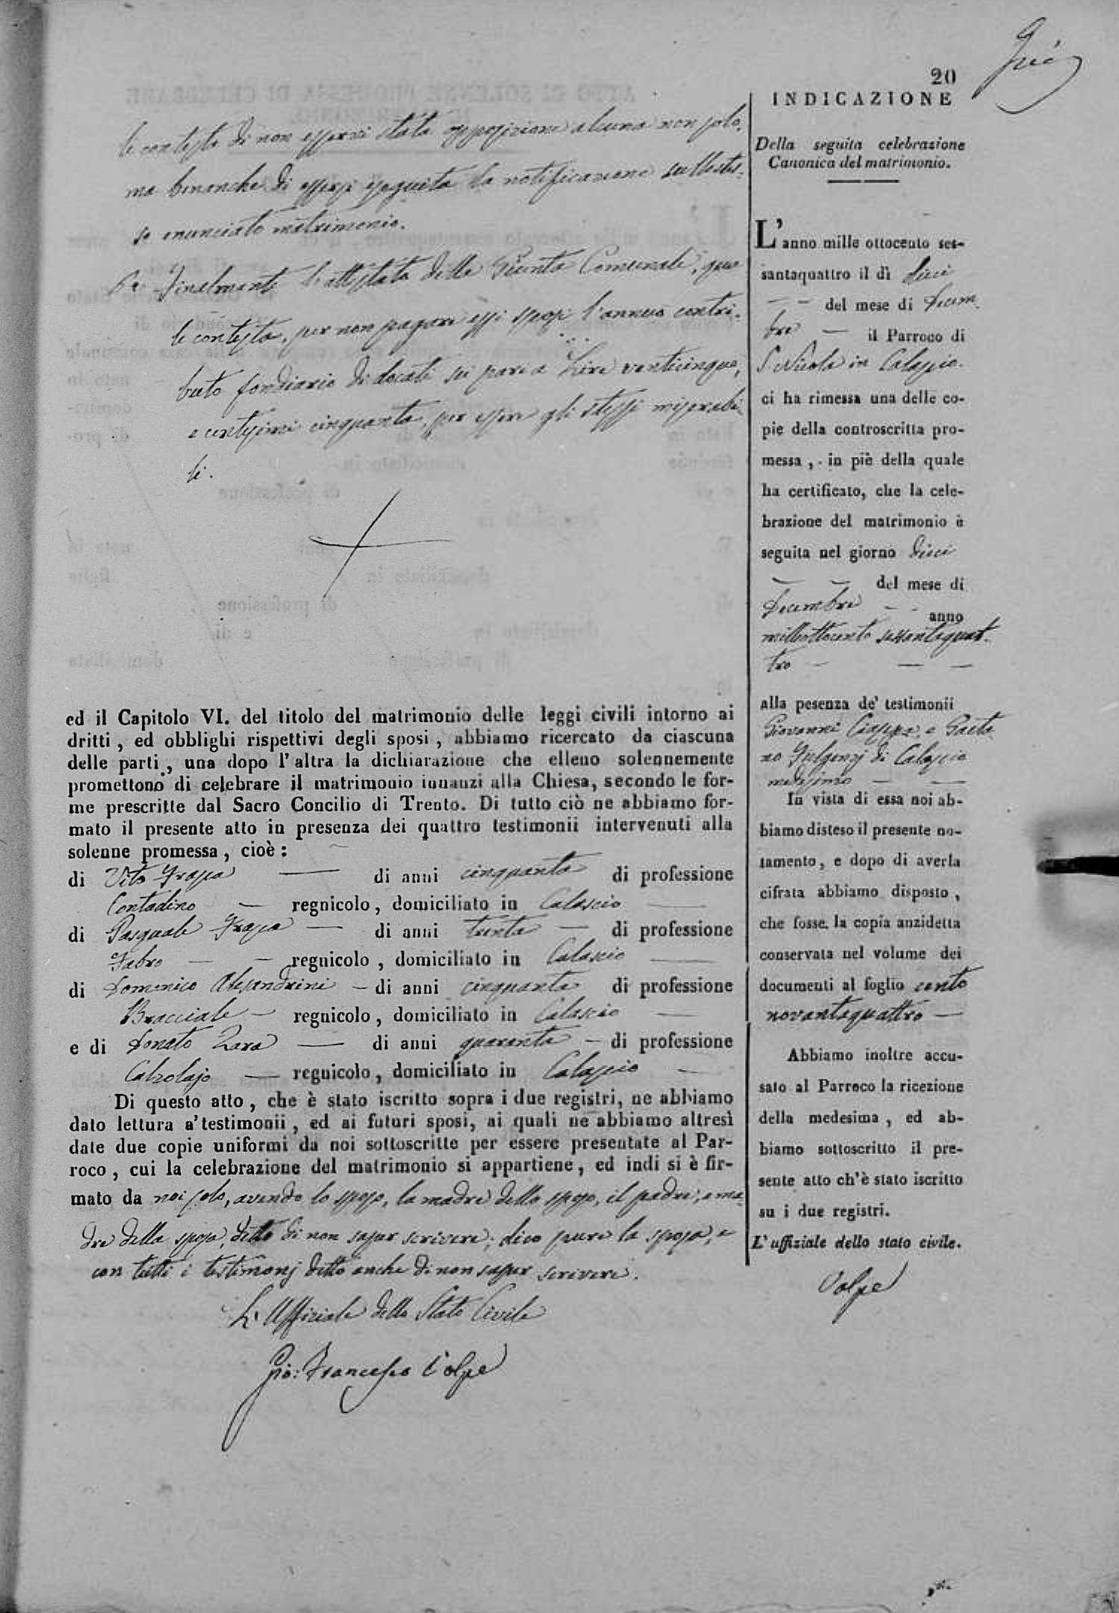 20
le contesta di non essersi stata opposizione alcuna non solo,
ma benanche di essersi eseguita la notificazione sullostes-
so enunciato matrimonio.
6.° Finalmente l'attestato della Giunta Comunale, qua
le contesta, per non pagare essi sposi l'annuo contri-
buto fondiario di docati sei pari a Lire venticinque,
e centesimi cinquanta, per essere gli stessi miserabi
li.
ed il Capitolo VI. del titolo del matrimonio delle leggi civili intorno ai
dritti, ed obblighi rispettivi degli sposi, abbiamo ricercato da ciascuna
delle parti, una dopo l'altra la dichiarazione che elleno solennemente
promettono di celebrare il matrimonio innanzi alla Chiesa, secondo le for-
me prescritte dal Sacro Concilio di Trento. Di tutto ciò ne abbiamo for-
mato il presente atto in presenza dei quattro testimonii intervenuti alla
solenne promessa, cioè:
di Vito Frasca — di anni cinquanta di professione
Contadino — regnicolo, domiciliato in Calascio —
di Pasquale Frasca — di anni trenta — di professione
Fabro — — regnicolo, domiciliato in Calascio —
di Domenico Alesandrini — di anni cinquanta di professione
Bracciale — regnicolo, domiciliato in Calascio —
e di Donato Zara — di anni quaranta — di professione
Calzolajo — regnicolo, domiciliato in Calascio —
Di questo atto, che è stato iscritto sopra i due registri, ne abbiamo
dato lettura a'testimonii, ed ai futuri sposi, ai quali ne abbiamo altresì
date due copie uniformi da noi sottoscritte per essere presentate al Par-
roco, cui la celebrazione del matrimonio si appartiene, ed indi si è fir-
mato da noi solo, avendo lo sposo, la madre dello sposo, il padre, e ma
dre della sposa, ditto di non saper scrivere; dico pure la sposa, e
con tutti i testimonj ditto anche di non saper scrivere.
L'Uffiziale dello Stato Civile
Gio: Francesco Volpe
INDICAZIONE
Della seguita celebrazione
Canonica del matrimonio.
L'anno mille ottocento ses-
santaquattro il dì dieci
— — del mese di Decem-
bre — il Parroco di
S. Nicola in Calascio.
ci ha rimessa una delle co-
pie della controscritta pro-
messa, in piè della quale
ha certificato, che la cele-
brazione del matrimonio è
seguita nel giorno dieci
— — del mese di
Decembre — - anno
milleottocento sessantaquat-
tro — — —
alla pesenza de' testimonii
Giovanni e Gaeta
no Fulgenzj di Calascio
medesimo — —
In vista di essa noi ab-
biamo disteso il presente no-
tamento, e dopo di averla
cifrata abbiamo disposto,
che fosse la copia anzidetta
conservata nel volume dei
documenti al foglio cento
novantaquattro —
Abbiamo inoltre accu-
sato al Parroco la ricezione
della medesima, ed ab-
biamo sottoscritto il pre-
sente atto ch'è stato iscritto
su i due registri.
L'uffiziale dello stato civile.
Volpe